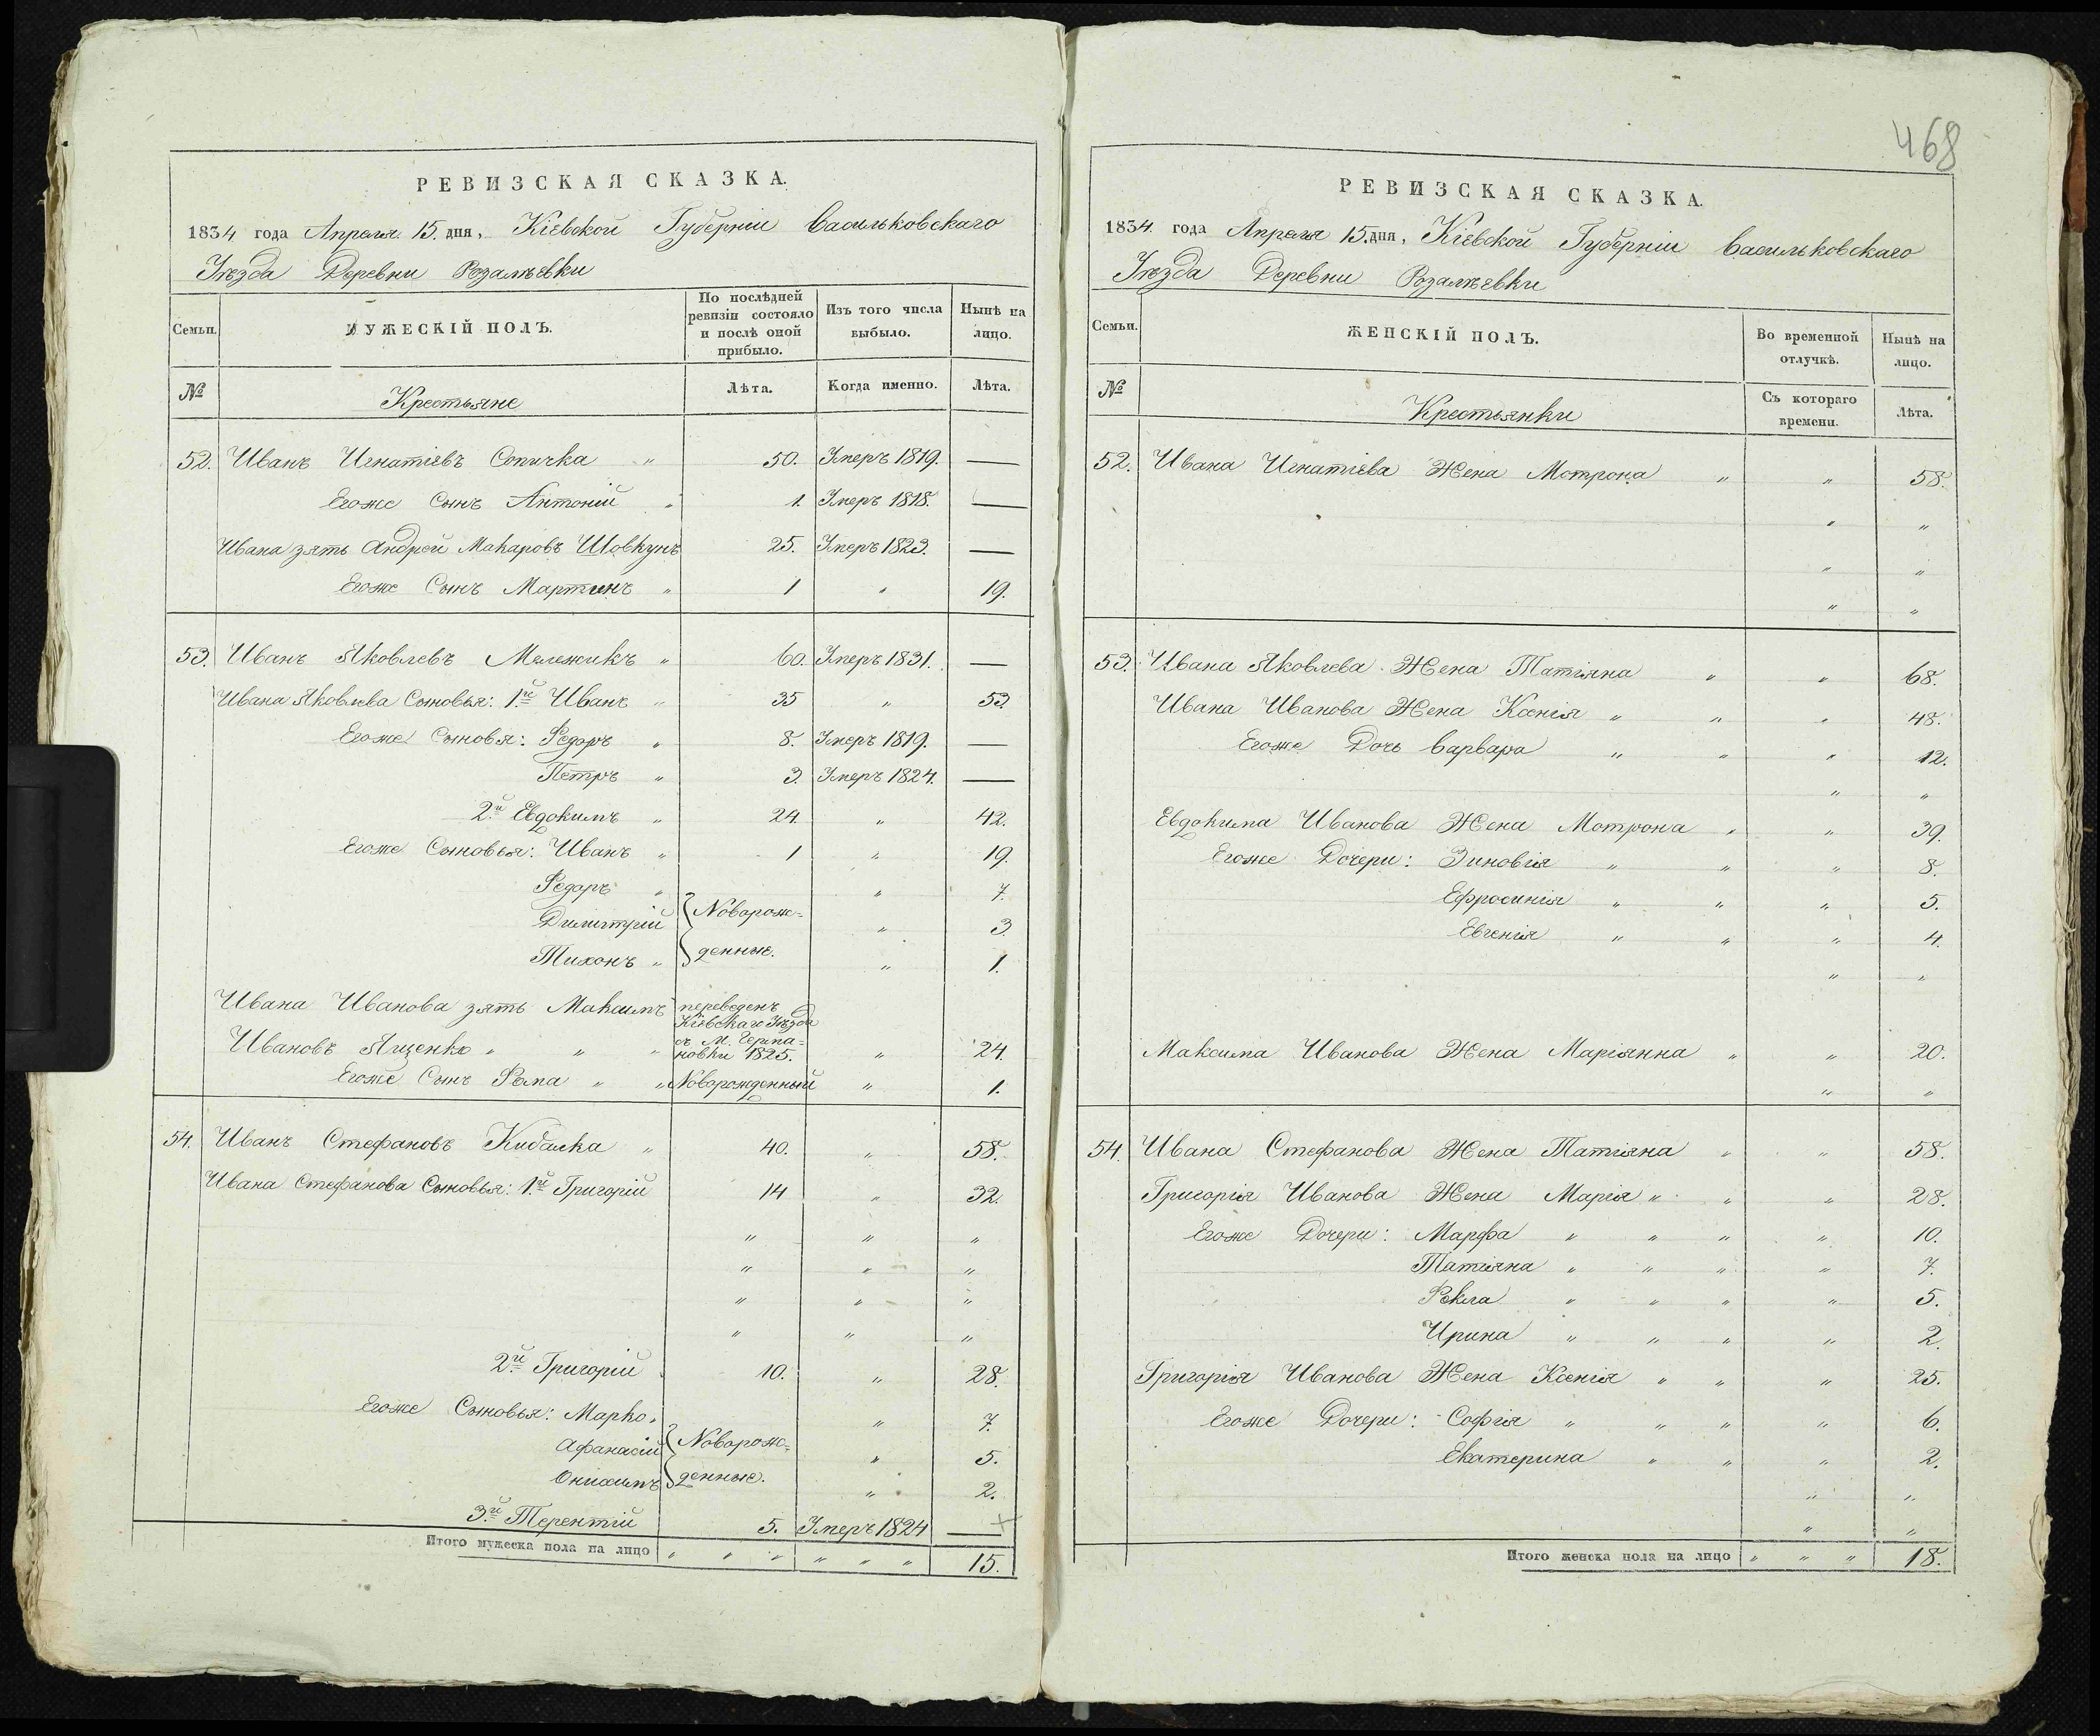 468
РЕВИЗСКАЯ СКАЗКА.
1834 года Апреля 15. дня, Кіевской Губерніи Васильковскаго
Уѣзда Деревни Розалѣевки
Семьи.
МУЖЕСКІЙ ПОЛЪ.
По послѣдней ревизіи состояло и послѣ оной прибыло.
Изъ того числа выбыло.
Нынѣ на лицо.
№
Крестьяне
Лѣта.
Когда именно.
Лѣта.
52. Иванъ Игнатіевъ Сопичка " 50. Умеръ 1819. —
Егоже Сынъ Антоній " 1. Умеръ 1818. —
Ивана зять Андрей Макаровъ Шовкунъ 25. Умеръ 1823. —
Егоже Сынъ Мартинъ " 1 " 19.
53. Иванъ Яковлевъ Мележикъ " 60. Умеръ 1831. —
Ивана Яковлева Сыновья: 1.й Иванъ " 35 " 53.
Егоже Сыновья: Ѳедоръ " 8. Умеръ 1819. —
Петръ " 3. Умеръ 1824. —
2.й Евдокимъ " 24. " 42.
Егоже Сыновья: Иванъ " 1 " 19.
Ѳедоръ " " 7.
Димитрій Новорож= " 3.
Тихонъ " денные. " 1.
Ивана Иванова зять Максимъ переведенъ
Кіевскаго Уѣзда
Ивановъ Яценко " " " съ М. Герма=
новки 1825. " 24.
Егоже Сынъ Ѳома " " Новорожденный " 1.
54. Иванъ Стефановъ Кибалка " 40. " 58.
Ивана Стефанова Сыновья: 1.й Григорій 14 " 32.
" " "
" " "
" " "
" " "
2.й Григорій 10. " 28.
Егоже Сыновья: Марко " " 7.
Афанасій Новорож= " 5.
Онисимъ денные. " 2.
3.й Терентій 5. Умеръ 1824 —
Итого мужеска пола на лицо " " " " " " 15.
РЕВИЗСКАЯ СКАЗКА.
1834. года Апреля 15. дня, Кіевской Губерніи Васильковскаго
Уѣзда Деревни Розалѣевки
Семьи.
ЖЕНСКІЙ ПОЛЪ.
Во временной отлучкѣ.
Нынѣ на лицо.
№
Крестьянки
Съ котораго времени.
Лѣта.
52. Ивана Игнатіева Жена Мотрона " " 58.
" "
" "
" "
53. Ивана Яковлева Жена Татіяна " " 68.
Ивана Иванова Жена Ксенія " " " 48.
Егоже Дочь Варвара " " " 12.
" "
Евдокима Иванова Жена Мотрона " " 39.
Егоже Дочери: Зиновія " " " 8.
Ефросинія " " " 5.
Евгенія " " " 4.
" "
Максима Иванова Жена Маріянна " " 20.
" "
54. Ивана Стефанова Жена Татіяна " " 58.
Григорія Иванова Жена Марія " " " 28.
Егоже Дочери: Марфа " " " " 10.
Татіяна " " " " 7.
Ѳекла " " " " 5.
Ирина " " " " 2.
Григорія Иванова Жена Ксенія " " " 25.
Егоже Дочери: Софія " " " " 6.
Екатерина " " " 2.
" "
" "
Итого женска пола на лицо " " " 18.